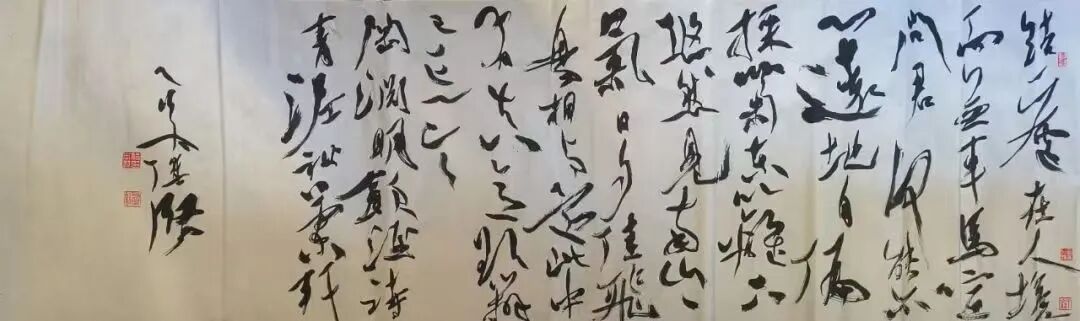 結廬在人境
而無車馬喧
問君何能尔
心遠地自偏
採菊東籬下
悠然見南山〻
氣日夕佳飛
鳥相與還此中
有真意欲辨
已忘言
陶淵明飲酒詩